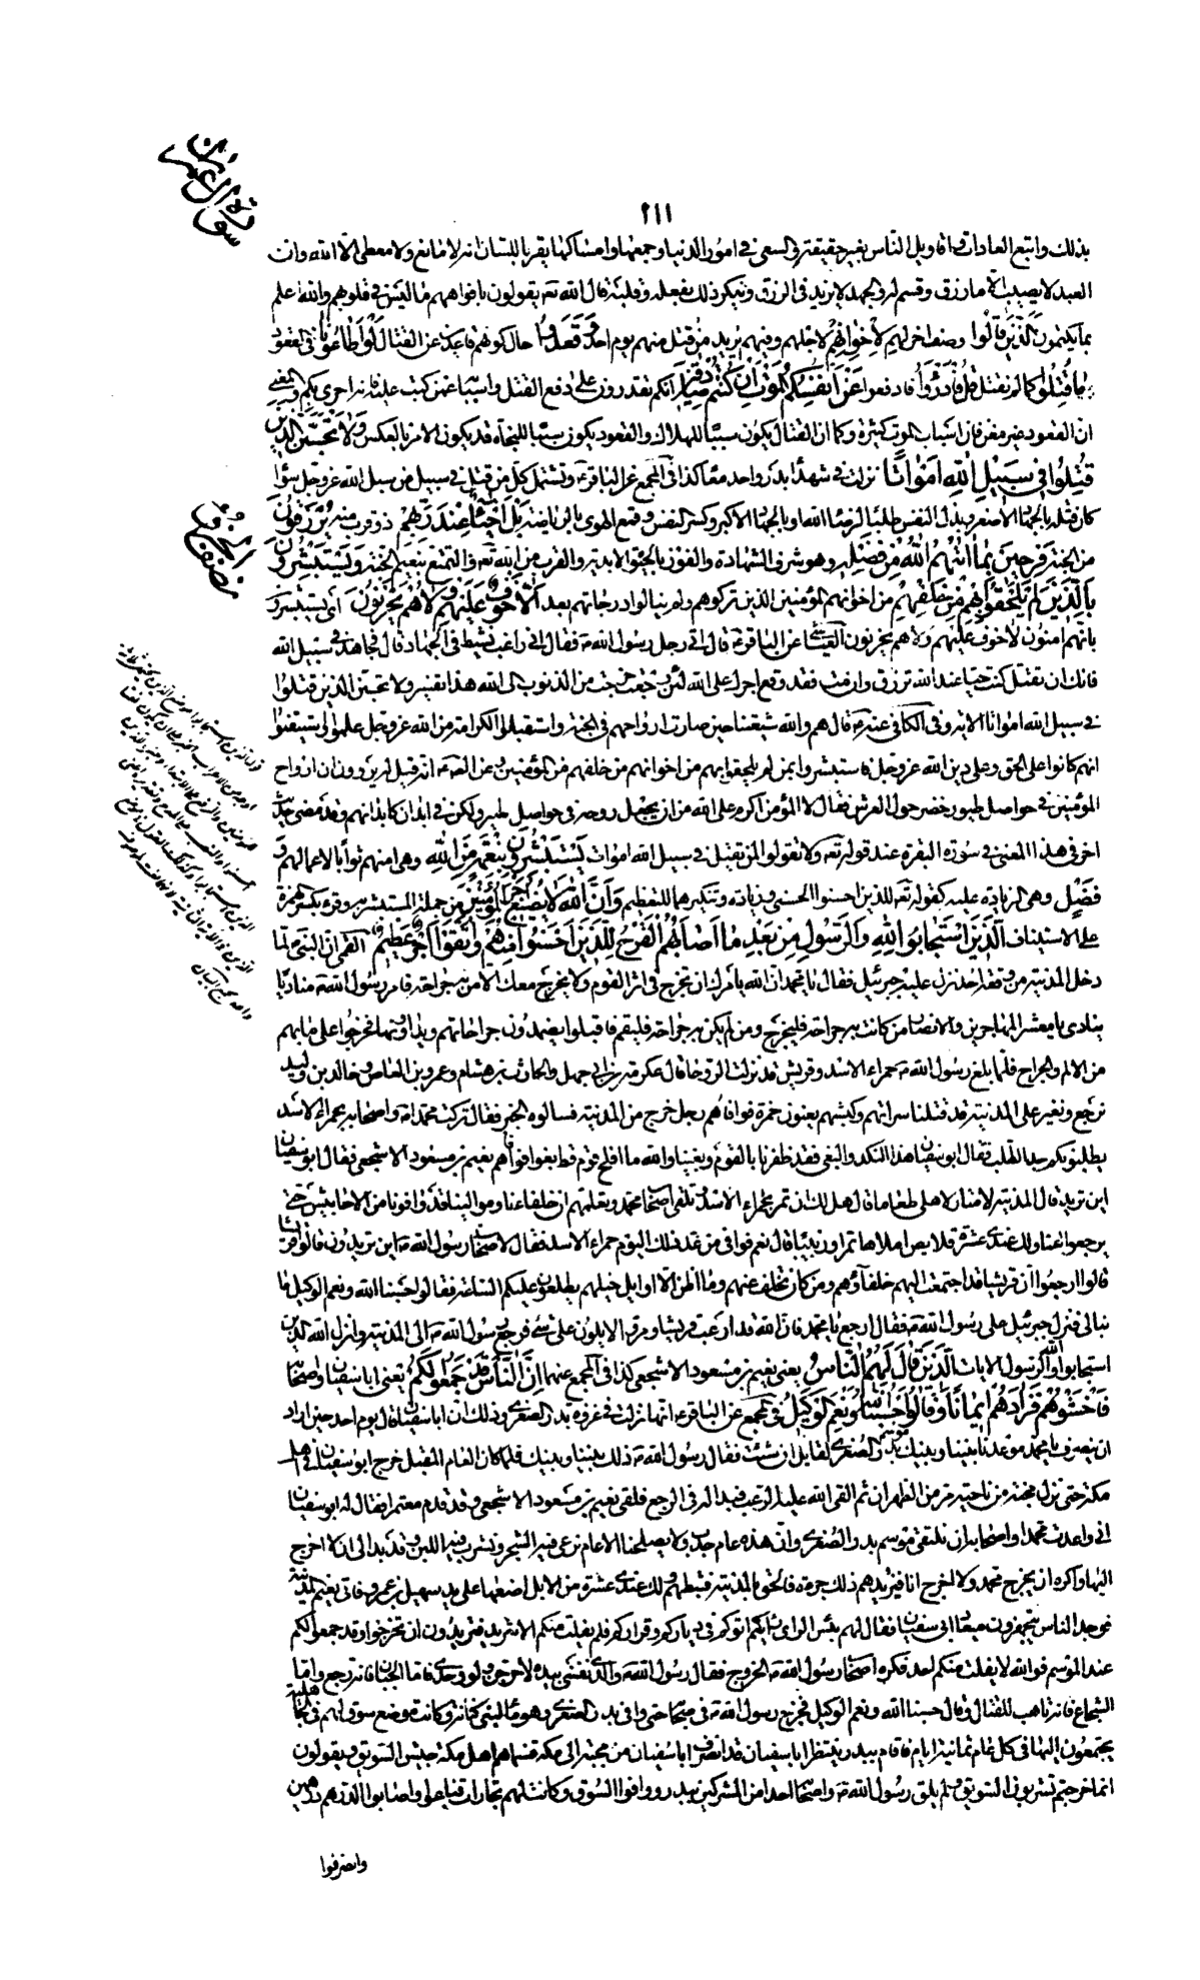 سورة ال عمران
٢١١
بذلك واتبع العادات واقاويل الناس بغير حقيقته والسعي في امور الدنيا وجمعها وامساكها يقر باللسان انه لا مانع ولا معطي الا الله وان
العبد لا يصيب الا ما رزق وقسم له والجهد لا يزيد في الرزق وينكر ذلك بفعله وقلبه قال الله تعه يقولون بافواههم ما ليس في قلوبهم والله اعلم
بما يكتمون الذين قالوا وصف اخر لهم لاخوانهم لاجلهم وفيهم يريد من قتل منهم يوم احد وقعدوا حال كونهم قاعدين عن القتال لو اطاعونا في القعود
ما قتلوا كما لم نقتل قل فادرؤا فادفعوا عن انفسكم الموت ان كنتم صادقين انكم تقدرون على دفع القتل واسبابه عمن كتب عليه فانه احرى بكم والمعنى
ان القعود غير مغن فان اسباب الموت كثيرة وكما ان القتال يكون سببا للهلاك والقعود يكون سببا للنجاة قد يكون الامر بالعكس ولا تحسبن الذين
قتلوا في سبيل الله امواتا نزلت في شهداء بدر واحد معا كذا في المجمع عن الباقر ع وتشمل كل من قتل في سبيل من سبل الله عز وجل سواء
كان قتله بالجهاد الاصغر وبذل النفس طلبا لرضا الله او بالجهاد الاكبر وكسر النفس وقمع الهوى بالرياضة بل احياء عند ربهم ذوو قرب منه يرزقون
الجزء الرابع
من الجنة فرحين بما اتيهم الله من فضله وهو شرف الشهادة والفوز بالحيوة الابدية والقرب من الله تعه والتمتع بنعيم الجنة ويستبشرون
بالذين لم يلحقوا بهم من خلفهم من اخوانهم المؤمنين الذين تركوهم ولم ينالوا درجاتهم بعد الا خوف عليهم ولا هم يحزنون اي يستبشرون
بانهم امنون لا خوف عليهم ولا هم يحزنون العياشي عن الباقر ع قال اتى رجل رسول الله ص فقال اني راغب نشيط في الجهاد قال فجاهد في سبيل الله
فانك ان تقتل كنت حيا عند الله ترزق وان مت فقد وقع اجرك على الله وان رجعت خرجت من الذنوب الى الله هذا تفسير ولا تحسبن الذين قتلوا
في سبيل الله امواتا الاية وفي الكافي عنه ع قال هم والله شيعتنا حين صارت ارواحهم في الجنة واستقبلوا الكرامة من الله عز وجل علموا واستيقنوا
انهم كانوا على الحق وعلى دين الله عز وجل فاستبشروا بمن لم يلحقوا بهم من اخوانهم من خلفهم من المؤمنين وعن الصادق ع انه قيل له يروون ان ارواح
المؤمنين في حواصل طيور خضر حول العرش فقال لا المؤمن اكرم على الله من ان يجعل روحه في حواصل طير ولكن في ابدان كابدانهم وقد مضى حديث
اخر في هذا المعنى في سورة البقرة عند قوله تعه ولا تقولوا لمن يقتل في سبيل الله اموات يستبشرون بنعمة من الله وهي امنهم ثوابا لاعمالهم و
فضل وهي الزيادة عليه كقوله تعه للذين احسنوا الحسنى وزيادة وتنكيرهما للتعظيم وان الله لا يضيع اجر المؤمنين من جملة المستبشر به وقرء بكسر همزة
على الاستيناف الذين استجابوا لله والرسول من بعد ما اصابهم القرح للذين احسنوا منهم واتقوا اجر عظيم القمي ان النبي ص لما
دخل المدينة من وقعة احد نزل عليه جبرئيل فقال يا محمد ان الله يامرك ان تخرج في اثر القوم ولا يخرج معك الا من به جراحة فامر رسول الله ص مناديا
ينادي يا معشر المهاجرين والانصار من كانت به جراحة فليخرج ومن لم يكن به جراحة فليقم فاقبلوا يضمدون جراحاتهم ويداوونها فخرجوا على ما بهم
من الالم والجراح فلما بلغ رسول الله ص حمراء الاسد وقريش قد نزلت الروحا قال عكرمة بن ابي جهل والحارث بن هشام وعمرو بن العاص وخالد بن وليد
نرجع ونغير على المدينة قد قتلنا سراتهم وكبشهم يعنون حمزة فوافاهم رجل خرج من المدينة فسالوه الخبر فقال تركت محمدا ص واصحابه بحمراء الاسد
يطلبونكم جد الطلب فقال ابو سفيان هذا النكد والبغي فقد ظفرنا بالقوم وبغينا والله ما افلح قوم قط بغوا فوافاهم نعيم بن مسعود الاشجعي فقال ابو سفيان
اين تريد قال المدينة لامتار لاهلي طعاما قال هل لك ان تمر بحمراء الاسد وتلقى اصحاب محمد وتعلمهم ان حلفاءنا وموالينا قد وافونا من الاحابيش حتى
يرجعوا عنا ولك عندي عشرة قلايص املاها تمرا وزبيبا قال نعم فوافى من غد ذلك اليوم حمراء الاسد فقال لاصحاب رسول الله ص اين تريدون قالوا قريشا
قالوا ارجعوا ان قريشا قد اجتمعت اليهم حلفاؤهم ومن كان تخلف عنهم وما اظن الا اوايل خيلهم يطلعون عليكم الساعة فقالوا حسبنا الله ونعم الوكيل ما
نبالي فنزل جبرئيل على رسول الله ص فقال ارجع يا محمد فان الله قد ارعب قريشا ومروا لا يلوون على شيء فرجع رسول الله ص الى المدينة وانزل الله الذين
استجابوا لله والرسول الايات الذين قال لهم الناس يعني نعيم بن مسعود الاشجعي كذا في المجمع عنهما ان الناس قد جمعوا لكم يعني ابا سفيان واصحابه
فاخشوهم فزادهم ايمانا وقالوا حسبنا الله ونعم الوكيل في المجمع عن الباقر ع انها نزلت في غزوة بدر الصغرى وذلك ان ابا سفيان قال يوم احد حين اراد
ان ينصرف يا محمد موعدنا بيننا وبينك موسم بدر الصغرى لقابل ان شئت فقال رسول الله ص ذلك بيننا وبينك فلما كان العام المقبل خرج ابو سفيان في اهل
مكة حتى نزل مجنة من ناحية مر الظهران ثم القى الله عليه الرعب فبدا له في الرجع فلقى نعيم بن مسعود الاشجعي وقد قدم معتمرا فقال له ابو سفيان
اني واعدت محمدا واصحابه ان نلتقي بموسم بدر الصغرى وان هذه عام جدب ولا يصلحنا الا عام نرعى فيه الشجر ونشرب فيه اللبن وقد بدا لي ان لا اخرج
اليها واكره ان يخرج محمد ولا اخرج انا فيزيدهم ذلك جرءة فالحق بالمدينة فثبطهم ولك عندي عشرة من الابل اضعها على يد سهيل بن عمرو فاتى نعيم المدينة
فوجد الناس يتجهزون ميعاد ابي سفيان فقال لهم بئس الراي رايكم اتوكم في دياركم وقراركم فلم يفلت منكم الا شريد فتريدون ان تخرجوا وقد جمعوا لكم
عند الموسم فوالله لا يفلت منكم احد فكره اصحاب رسول الله ص الخروج فقال رسول الله ص والذي نفسي بيده لاخرجن ولو وحدي فاما الجبان فانه رجع واما
الشجاع فانه تاهب للقتال وقال حسبنا الله ونعم الوكيل فخرج رسول الله ص في اصحابه حتى وافى بدر الصغرى وهو ماء لبني كنانة وكانت موضع سوق لهم في الجاهلية
يجتمعون اليها في كل عام ثمانية ايام فاقام ببدر ينتظر ابا سفيان وقد انصرف ابا سفيان من مجنة الى مكة فسماهم اهل مكة جيش السويق ويقولون
انما خرجتم تشربون السويق ولم يلق رسول الله ص واصحابه احدا من المشركين ببدر ووافوا السوق وكانت لهم تجارات فباعوا واصابوا الدرهم درهمين
وانصرفوا